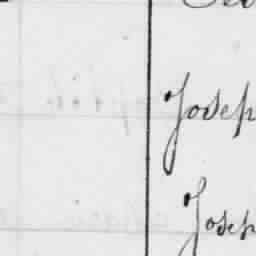 Josep
Josep